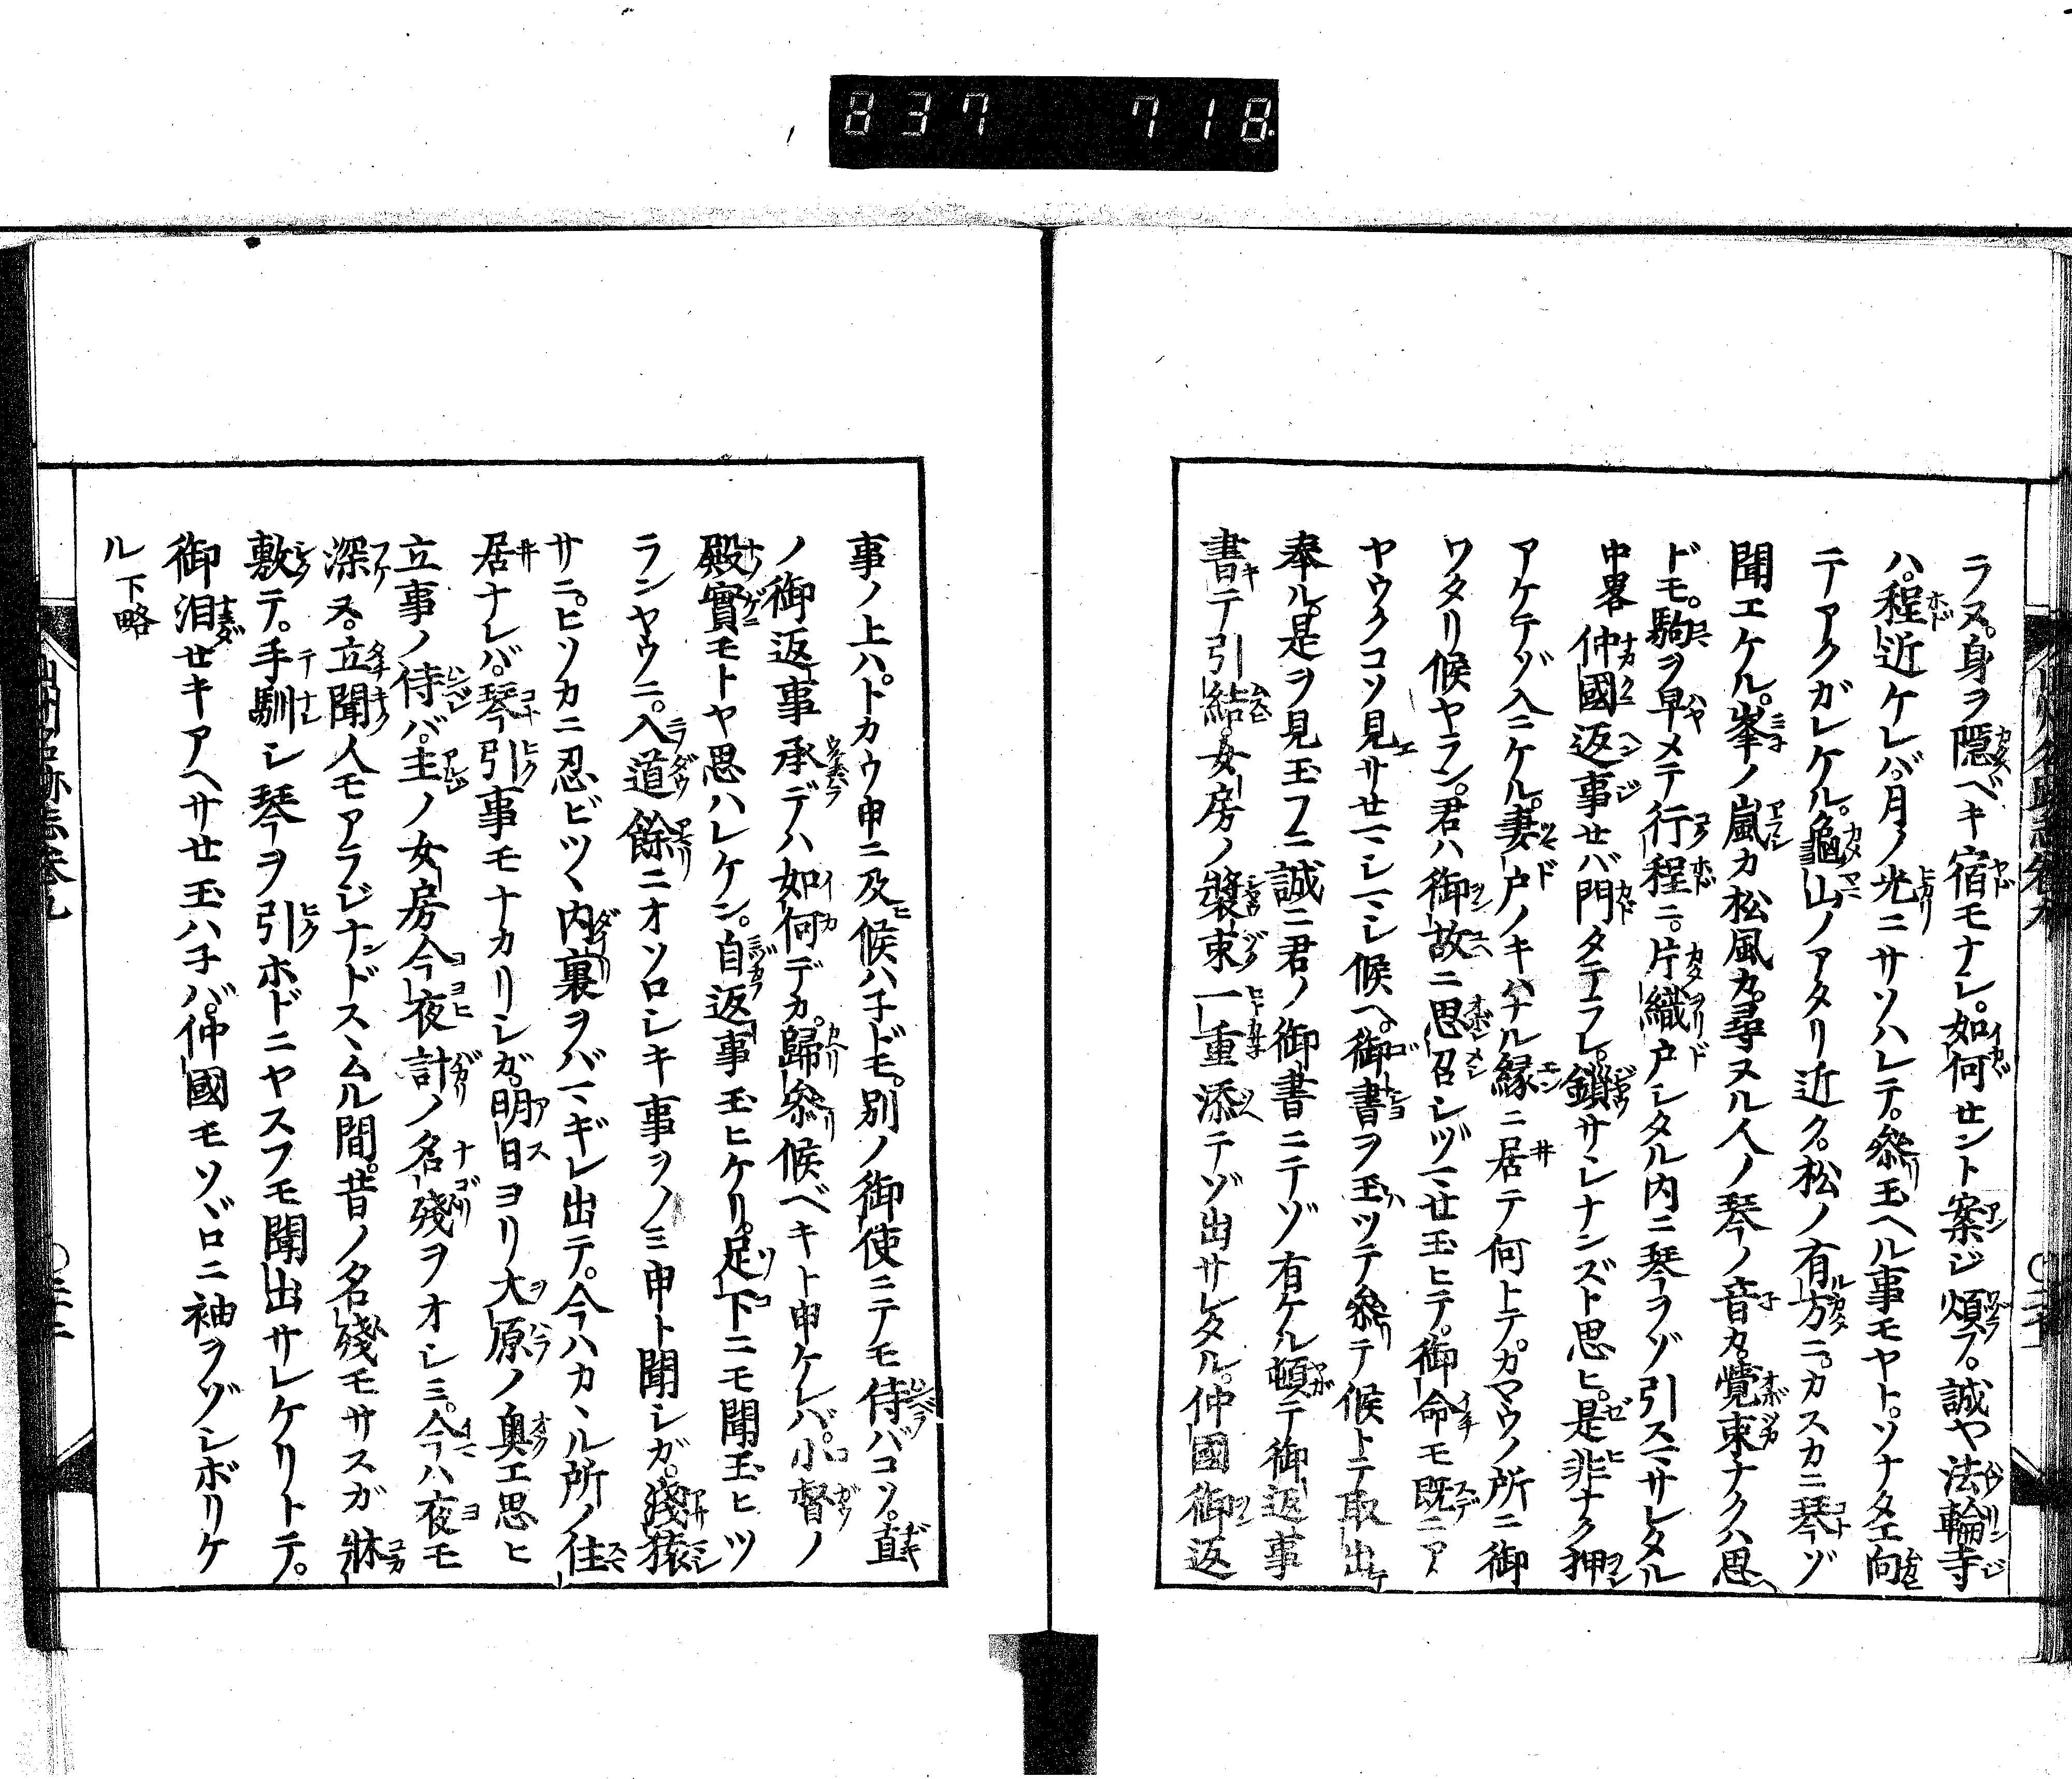 837 718
ラヌ。身ヲ隠ベキ宿モナレ。如何セント案ジ煩フ。誠ヤ法輪寺
ハ。程近ケレバ。月ノ光ニサソハレテ。叅玉ヘル事モヤト。ソナタエ向
テアクガレケル。龜山ノアタリ近ク。松ノ有方ニ。カスカニ琴ゾ
聞エケル。峯ノ嵐カ松風カ。尋ヌル人ノ琴ノ音カ。覺束ナクハ思ヘ
ドモ。駒ヲ早メテ行程ニ。片織戸シタル内ニ琴ヲゾ引スマサレタル
中畧 仲國返事セバ門タテラレ。鎖サレナンズト思ヒ。是非ナク押
アケテゾ入ニケル。妻戸ノキハナル縁ニ居テ何トテ。カマウノ所ニ御
ワタリ候ヤラン。君ハ御故ニ思召シヅマセ玉ヒテ。御命モ既ニアヤ
ヤウクコソ見サセマシマシ候ヘ。御書ヲ玉ツテ叅テ候トテ取出
奉ル。是ヲ見玉フニ誠ニ君ノ御書ニテゾ有ケル。頓テ御返事
書テ引結。女房ノ裝束一重添テゾ出サレタル。仲國御返
事ノ上ハ。トカウ申ニ及候ハ子ドモ。別ノ御使ニテモ侍バコソ。直
ノ御返事承デハ如何デカ。歸叅候ベキト申ケレバ。小督ノ
殿實モトヤ思ハレケン。自返事玉ヒケリ。足下ニモ聞玉ヒツ
ランヤウニ。入道餘ニオソロシキ事ヲノミ申ト聞シガ。淺猿
サニ。ヒソカニ忍ビツヽ内裏ヲバマギレ出テ。今ハカヽル所ノ住
居ナレバ。琴引事モナカリシガ。明日ヨリ大原ノ奥エ思ヒ
立事ノ侍バ。主ノ女房今夜計ノ名殘ヲオシミ。今ハ夜モ
深ヌ。立聞人モアラジナンドスヽムル間。昔ノ名殘モサスガ牀
敷テ。手馴シ琴ヲ引ホドニヤスフモ聞出サレケリトテ。
御泪セキアヘサセ玉ハ子バ。仲國モソヾロニ袖ヲゾシボリケ
ル 下略